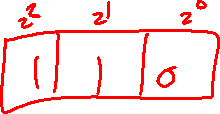 2² 2¹ 2⁰
1 1 0